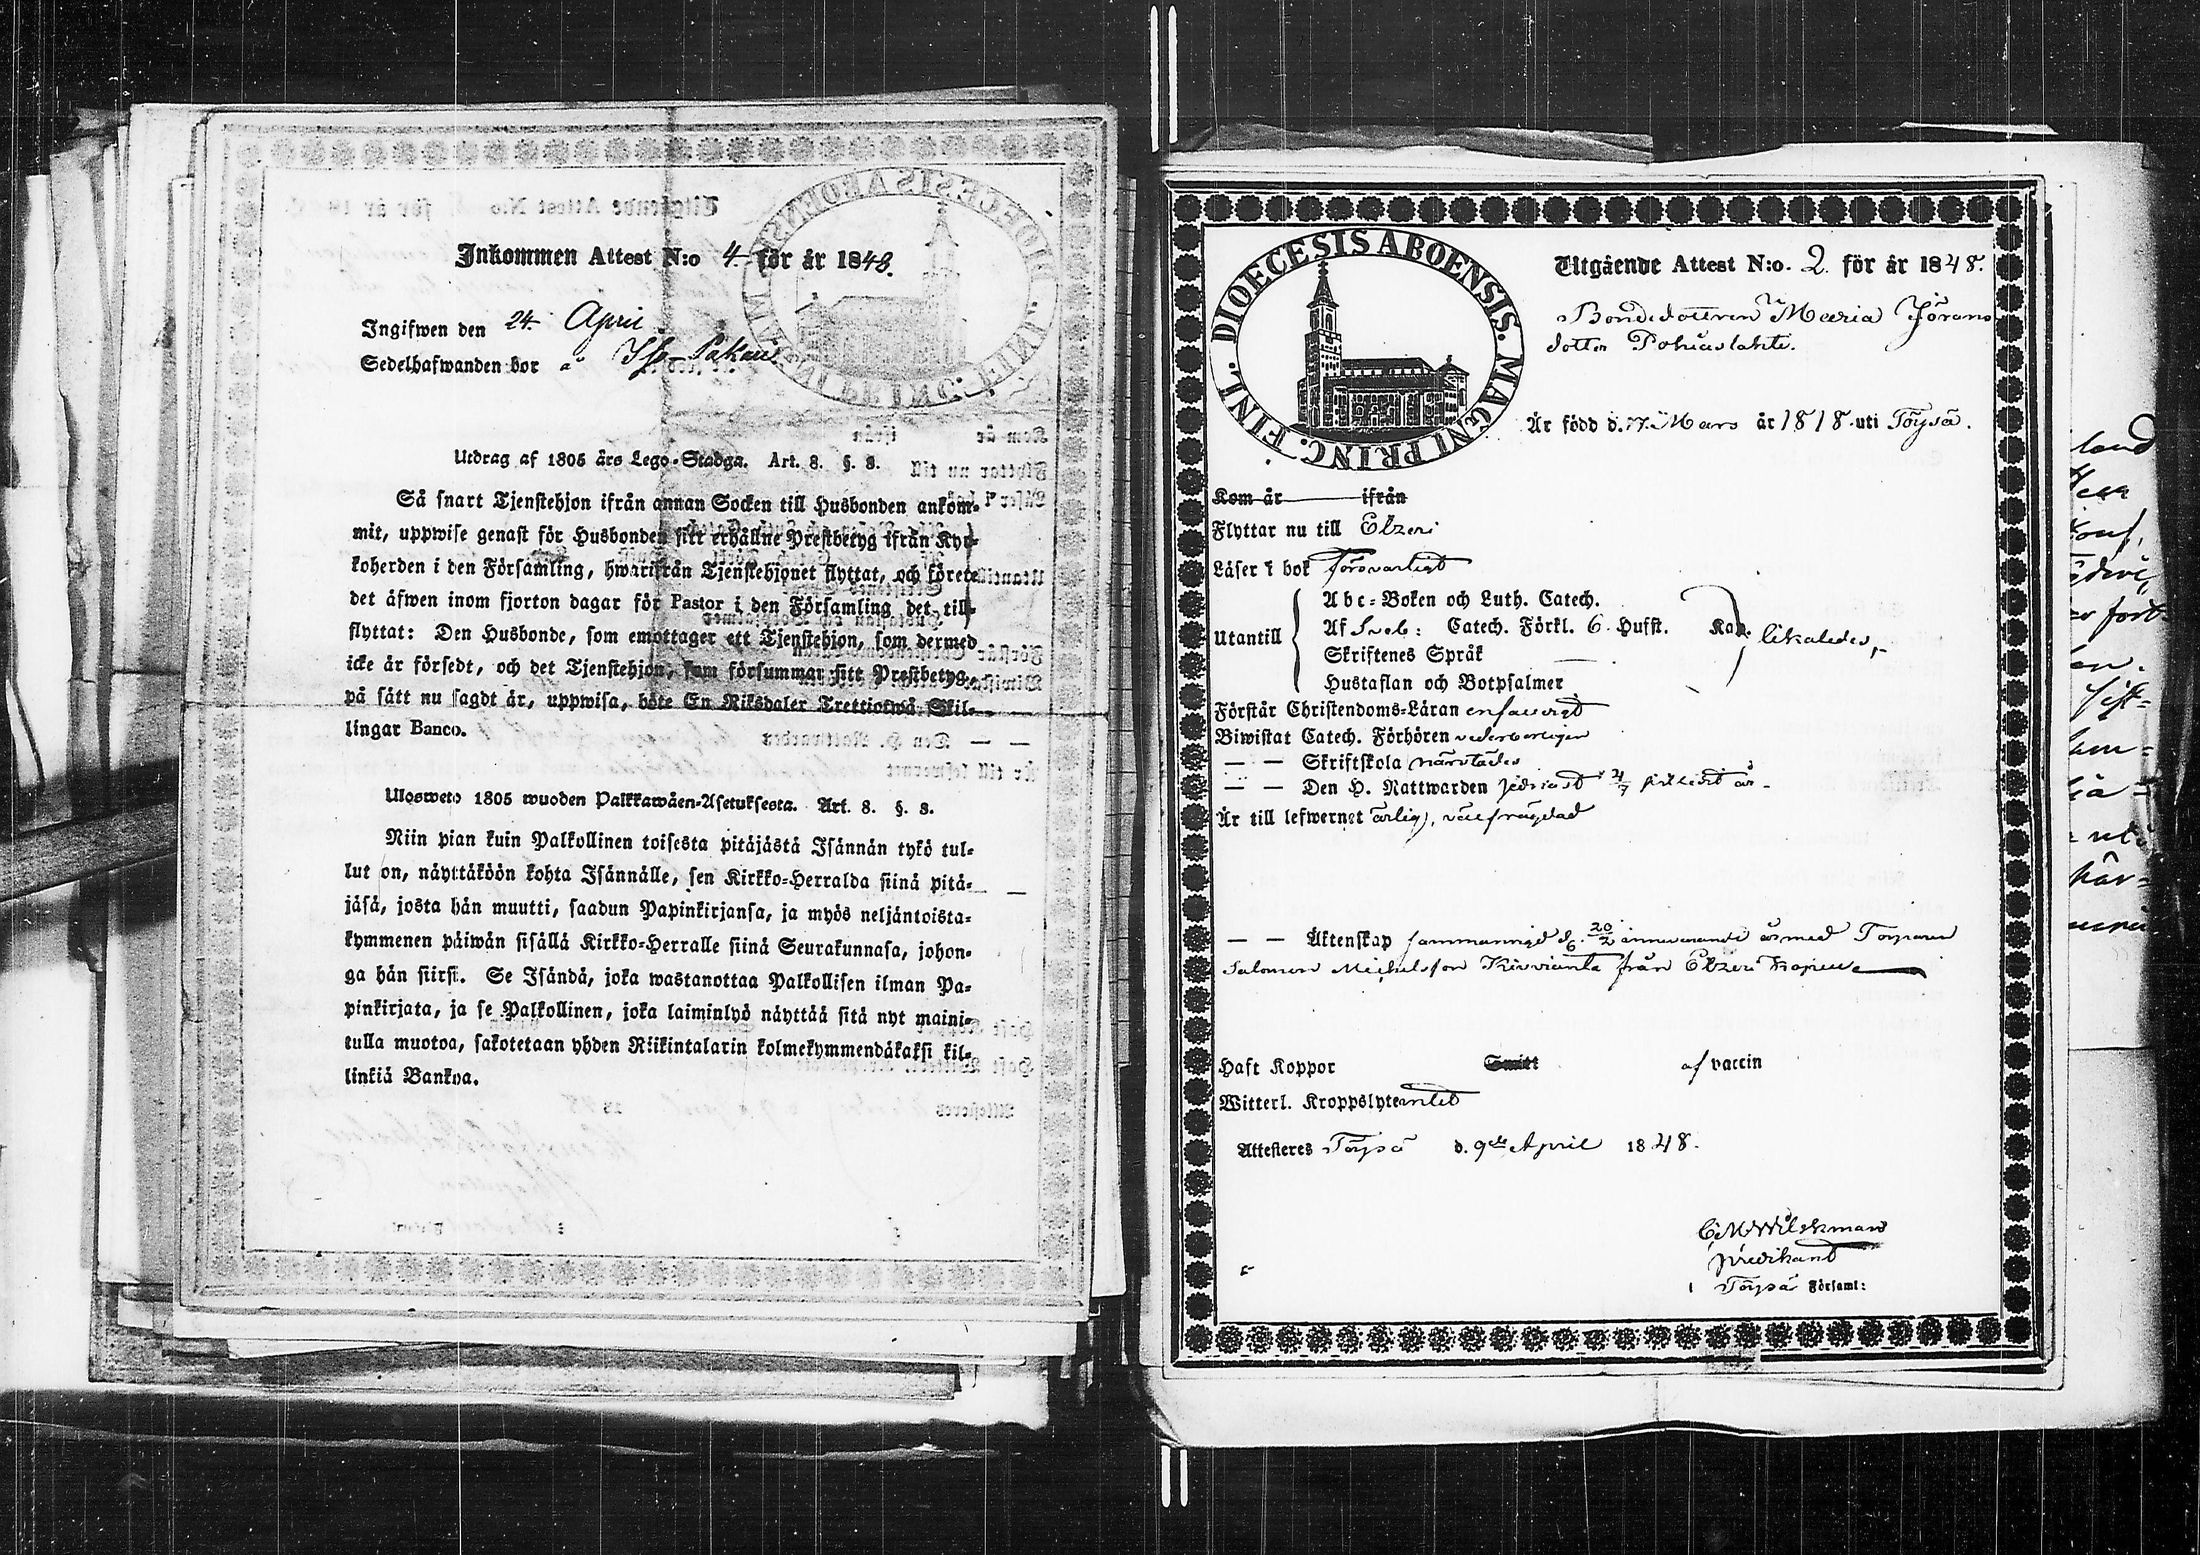 Inkommen Attest N:o 4 för år 1848.
Ingifwen den 24 April
Sedelhafwanden bor å
Utdrag af 1805 års Lego-Stadga. Art. 8. §. 8.
Så snart Tjenstehjon ifrån annan Socken till Husbonden ankom-
mit, uppwise genast för Husbonden sitt erhållne Prestbetyg ifrån Kyr-
koherden i den Församling, hwarifrån Tjenstehjonet flyttat, och förete
det äfwen inom fjorton dagar för Pastor i den Församling det till-
flyttat: Den Husbonde, som emottager ett Tjenstehjon, som dermed
icke är försedt, och det Tjenstehjon, som försummar sitt Prestbetyg,
på sätt nu sagdt är, uppwisa, böte En Riksdaler Trettiotwå Skil-
lingar Banco.
Ulosweto 1805 wuoden Palkkawäen-Asetuksesta. Art. 8. §. 8.
Niin pian kuin Palkollinen toisesta pitäjästä Isännän tykö tul-
lut on, näyttäköön kohta Isännälle, sen Kirkko-Herralda siinä pitä-
jäsä, josta hän muutti, saadun Papinkirjansa, ja myös neljäntoista-
kymmenen päiwän sisällä Kirkko-Herralle siinä Seurakunnasa, johon-
ga hän siirsi. Se Isändä, joka wastanottaa Palkollisen ilman Pa-
pinkirjata, ja se Palkollinen, joka laiminlyö näyttää sitä nyt maini-
tulla muotoa, sakotetaan yhden Riikintalarin kolmekymmendäkaksi kil-
linkiä Bankoa.
DIOECESIS ABOENSIS. MAGNI PRINC. FINL.
Utgående Attest N:o. 2 för år 1848.
Bondedottren Maria Jörans
dotter Pohiaslahti.
Är född d. 17 Mars år 1818 uti Töysä.
Kom år ifrån
Flyttar nu till Etzeri
Läser i bok försvarligt
Utantill
Abc-Boken och Luth. Catech.
Af Sveb: Catech. Förkl. 6 Hufst. Kap. likaledes,
Skriftenes Språk
Hustaflan och Botpsalmer
Förstår Christendoms-Läran enfaldigt
Biwistat Catech. Förhören vederbörligen
— — Skriftskola
— — Den H. Nattwarden
Är till lefwernet ärlig, välfrägdad
— — Äktenskap 20/2 innevarande år med Torparen
Salomon Michelsson Kivviranta från Etzeri kapell
Haft Koppor Smitt af vaccin
Witterl. Kroppslyte intet
Attesteres Töysä d. 9de April 1848.
Predikant
i Töysä Församl: